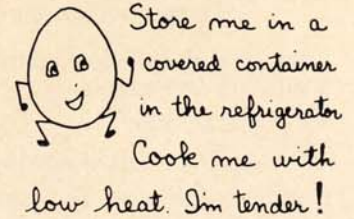 Store me in a
covered container
in the refrigerator
Cook me with
low heat. I'm tender!